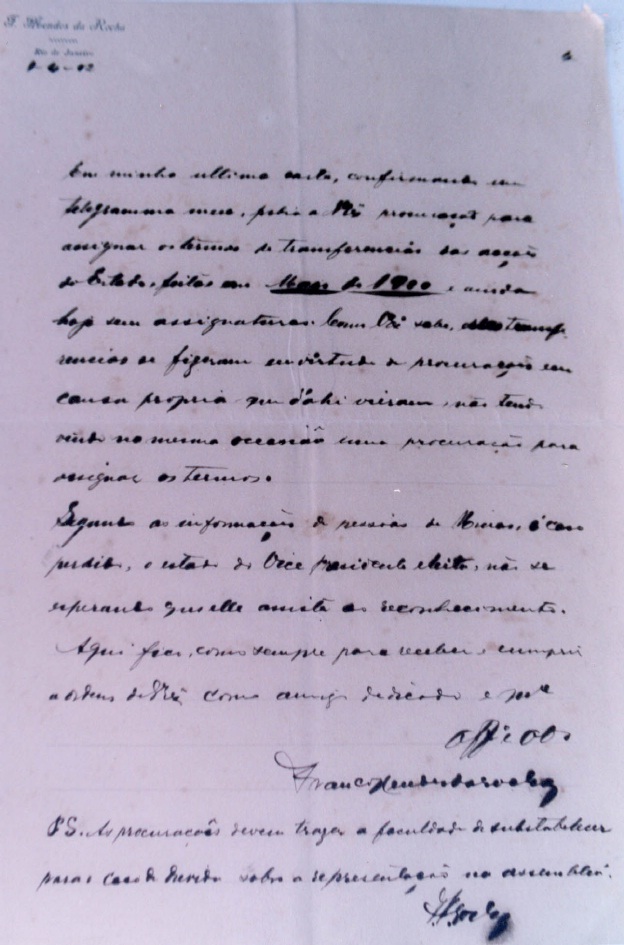 F. Mendes da Rocha
Rio de Janeiro
Em minha ultima carta, confirmando um
telegramma meu, pedia a VEx procuração para
assignar os termos de transferencias das acções
do Estado, feitas em Março de 1900 e ainda
hoje sem assignaturas. Como VEx sabe, transfe
rencias se fizeram em virtude de procurações em
causa propria que d'ahi vieram, não tendo
vindo na mesma occasião uma procuração para
assignar os termos.
Segundo as informações de pessoas de Minas, é caso
perdido, o estado do Vice presidente eleito, não se
esperando que elle assista ao reconhecimento.
Aqui fico, como sempre para receber e cumprir
as ordens de VEx como amigo dedicado e mto
Franco Mendes da Rocha
PS. As procurações devem trazer a faculdade de substabelecer
para o caso de duvida sobre a representação na assembléa.